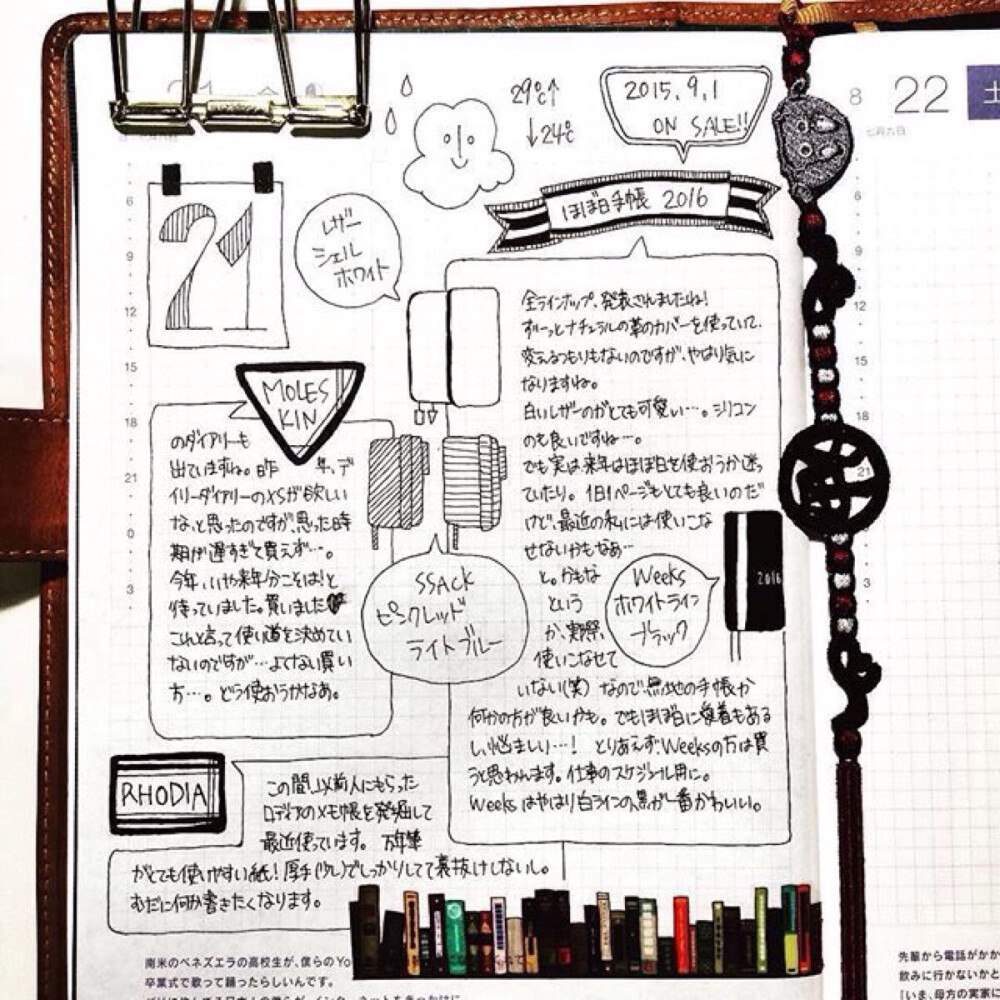 29℃↑
↓24℃
2015.9.1
ON SALE!!
8
22
土
七月九日
ほぼ日手帳 2016
21
レザー
シェル
ホワイト
全ラインナップ、発表されましたね!
ずーっとナチュラルの革のカバーを使っていて、
変えるつもりもないのですが、やはり気に
なりますね。
白いレザーのがとても可愛い…。シリコン
のも良いですね…。
でも実は来年はほぼ日を使おうか迷っ
ていたり。1日1ページもとても良いのだ
けど、最近の私には使いこな
せないかもなあ…
と。かもな
という
か、実際、
使いこなせて
いない(笑) なので、無地の手帳か
何かの方が良いかも。でもほぼ日に愛着もある
し、悩ましい…! とりあえずWeeksの方は買
うと思われます。仕事のスケジュール用に。
Weeksはやはり白ラインの黒が一番かわいい。
MOLES
KIN
のダイアリーも
出ていますね。昨年、デ
イリーダイアリーのXSが欲しい
な、と思ったのですが、思った時
期が遅すぎて買えず…。
今年、いや来年分ことは!と
待っていました。買いました♥
これと言って使い道を決めてい
ないのですが…よくない買い
方…。どう使おうかなあ。
SSACK
ピンクレッド
ライトブルー
Weeks
ホワイトライン
ブラック
2016
RHODIA
この間、以前人にもらった
ロディアのメモ帳を発掘して
最近使っています。 万年筆
がとても使いやすい紙!厚手(少し)でしっかりしてて裏抜けしないし。
むだに何か書きたくなります。
6
9
12
15
18
21
0
3
6
9
12
15
18
21
3
南米のベネズエラの高校生が、僕らのYo
卒業式で歌って踊ったらしいんです。
先輩から電話がかか
飲みに行かないかと
「いま、母方の実家に